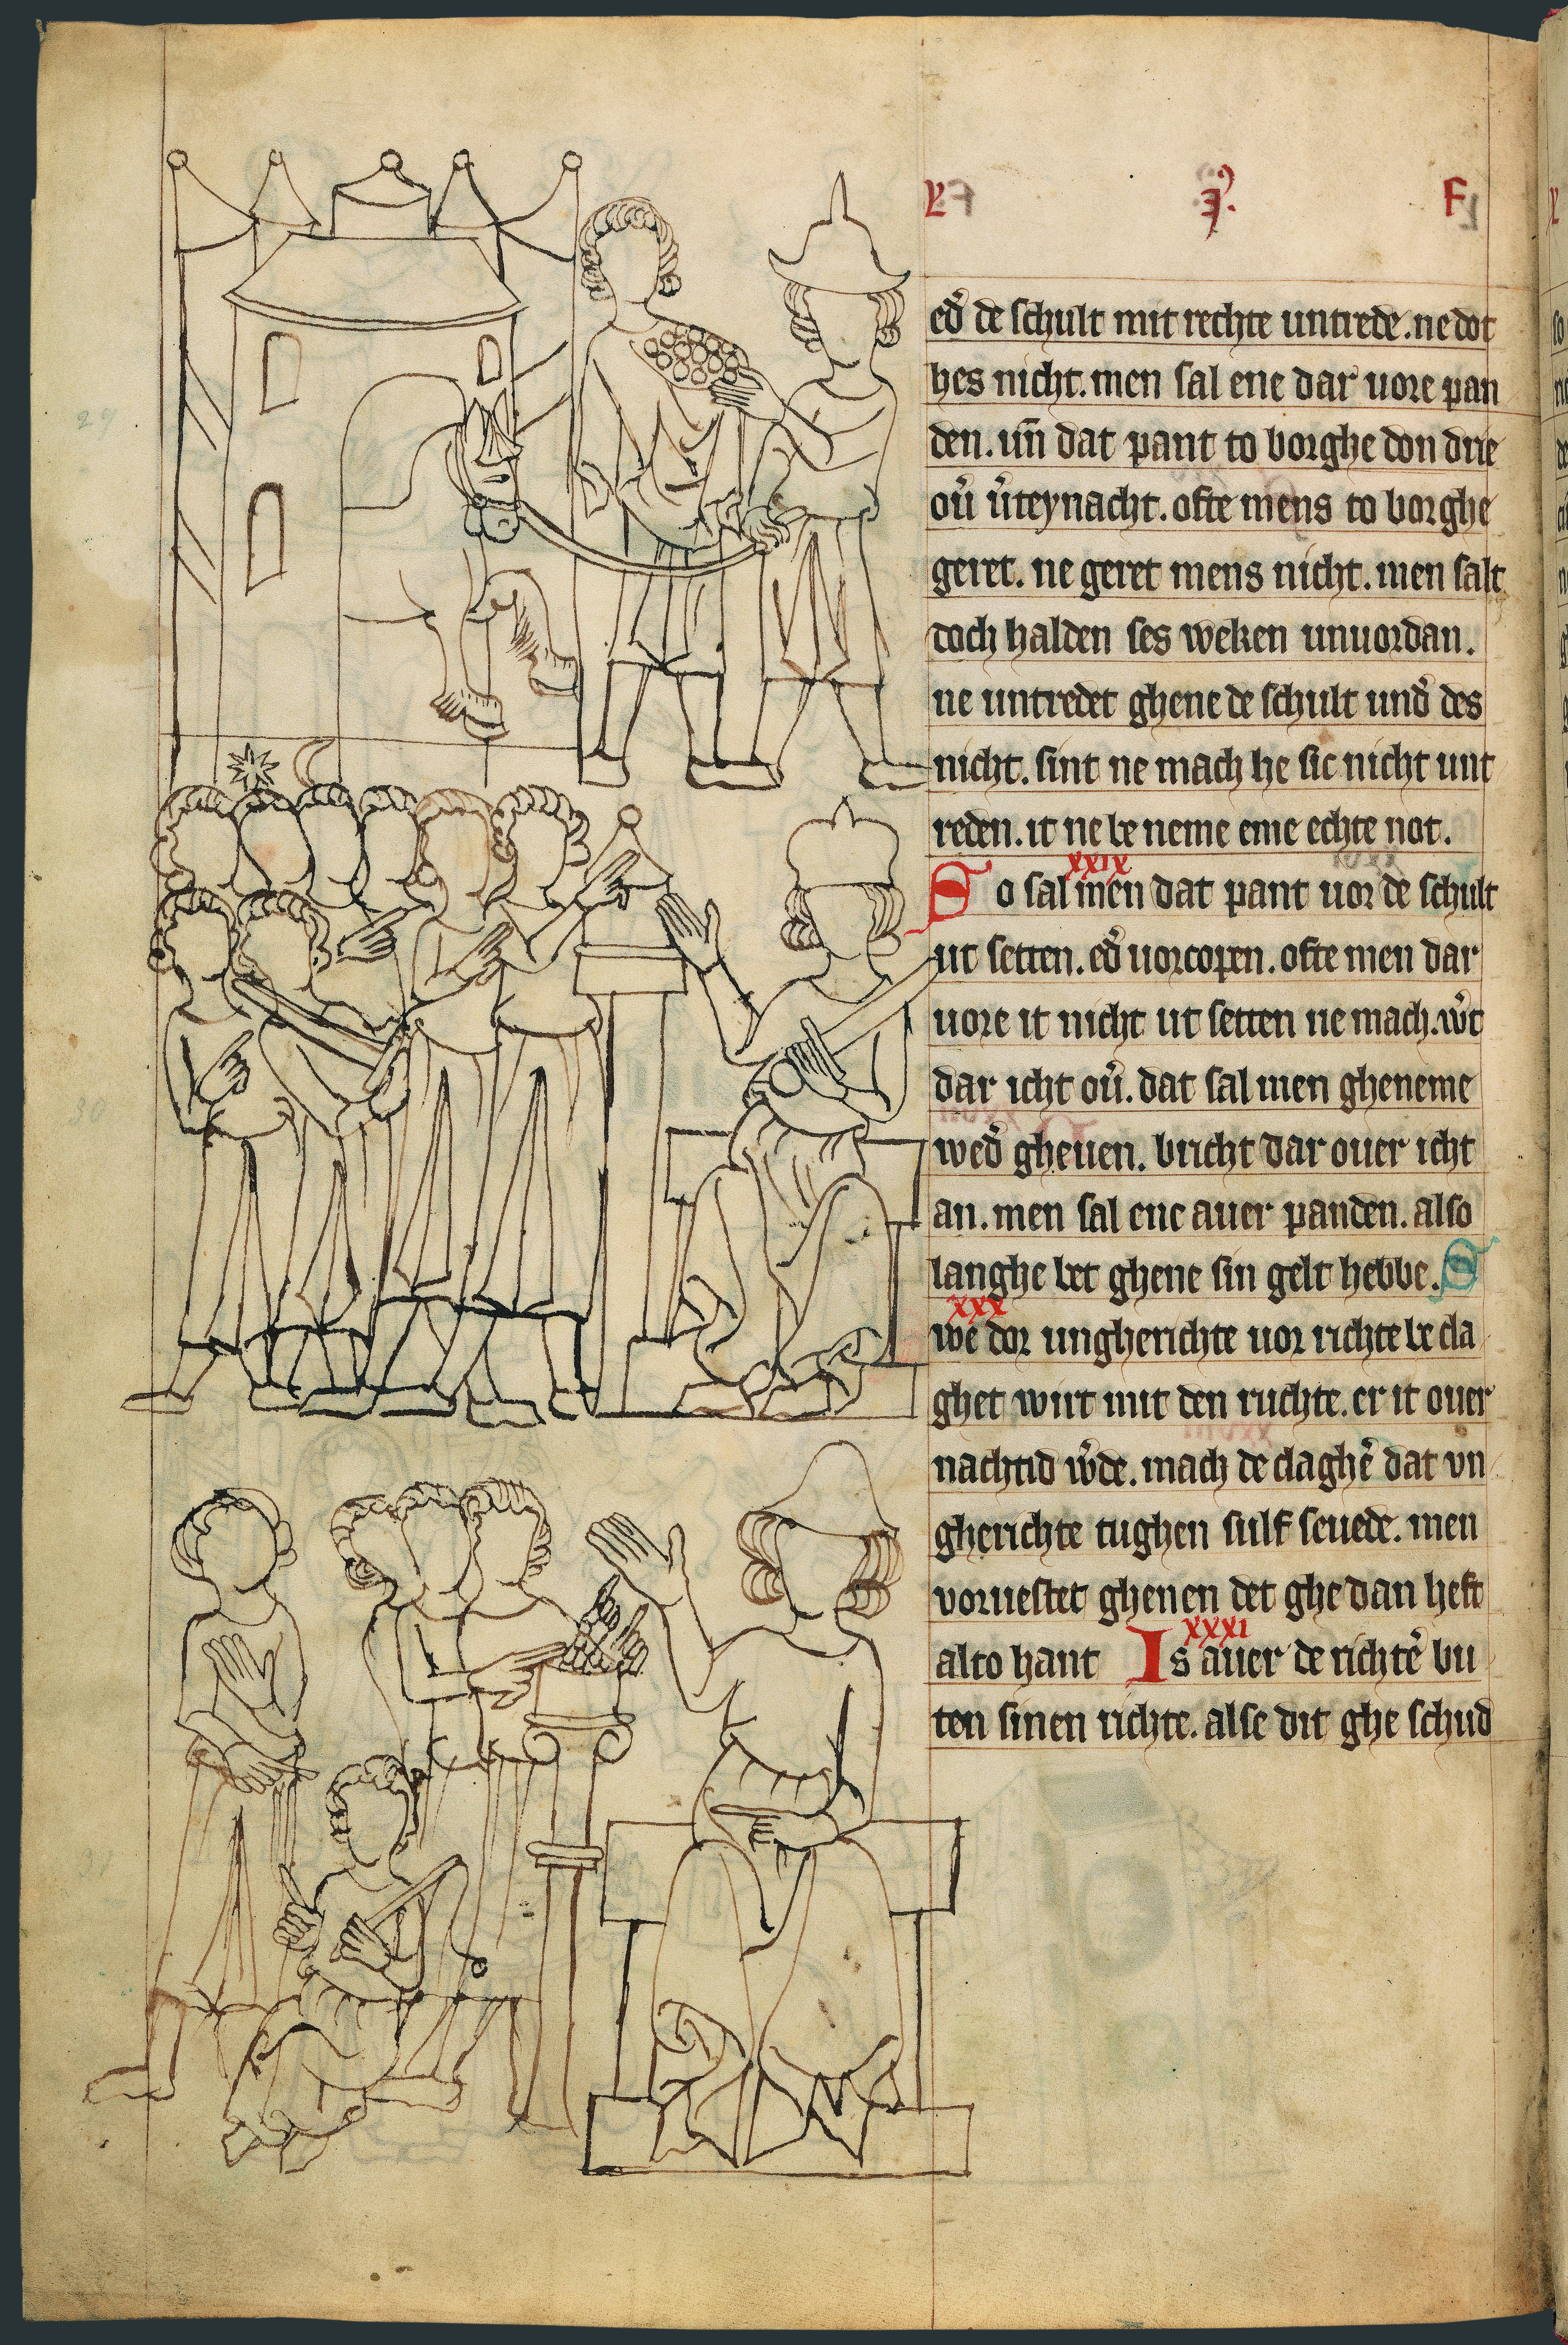 L ꝫ. F
ed̛ de schult mit rechte untrede. ne dot
hes nicht. men sal ene dar uore pan
den. uñ dat pant to borghe don drie
ou̇̃ u̇̃teynacht. ofte mens to borghe
geret. ne geret mens nicht. men salt
doch halden ses weken unuordan.
ne untredet ghene de schult und̛ des
nicht. sint ne mach he sic nicht unt
reden. it ne be neme eme echte not.
xxix
So sal men dat pant uor de schult
ut setten. ed̛ uorcopen. ofte men dar
uore it nicht ut setten ne mach. w̛t
dar icht ou̇̃. dat sal men gheneme
wed̛ gheuen. bricht dar ouer icht
an. men sal ene auer panden. also
langhe bet ghene sin gelt hebbe. S
xxx
we dor ungherichte uor richte be cla
ghet wirt mit den ruchte. er it ouer
nachtid w̛de. mach de claghe̛ dat vn
gherichte tughen sulf seuede. men
voruestet ghenen det ghe dan heft
xxxi
alto hant Is auer de richte̛ bu
ten sinen richte. alse dit ghe schud